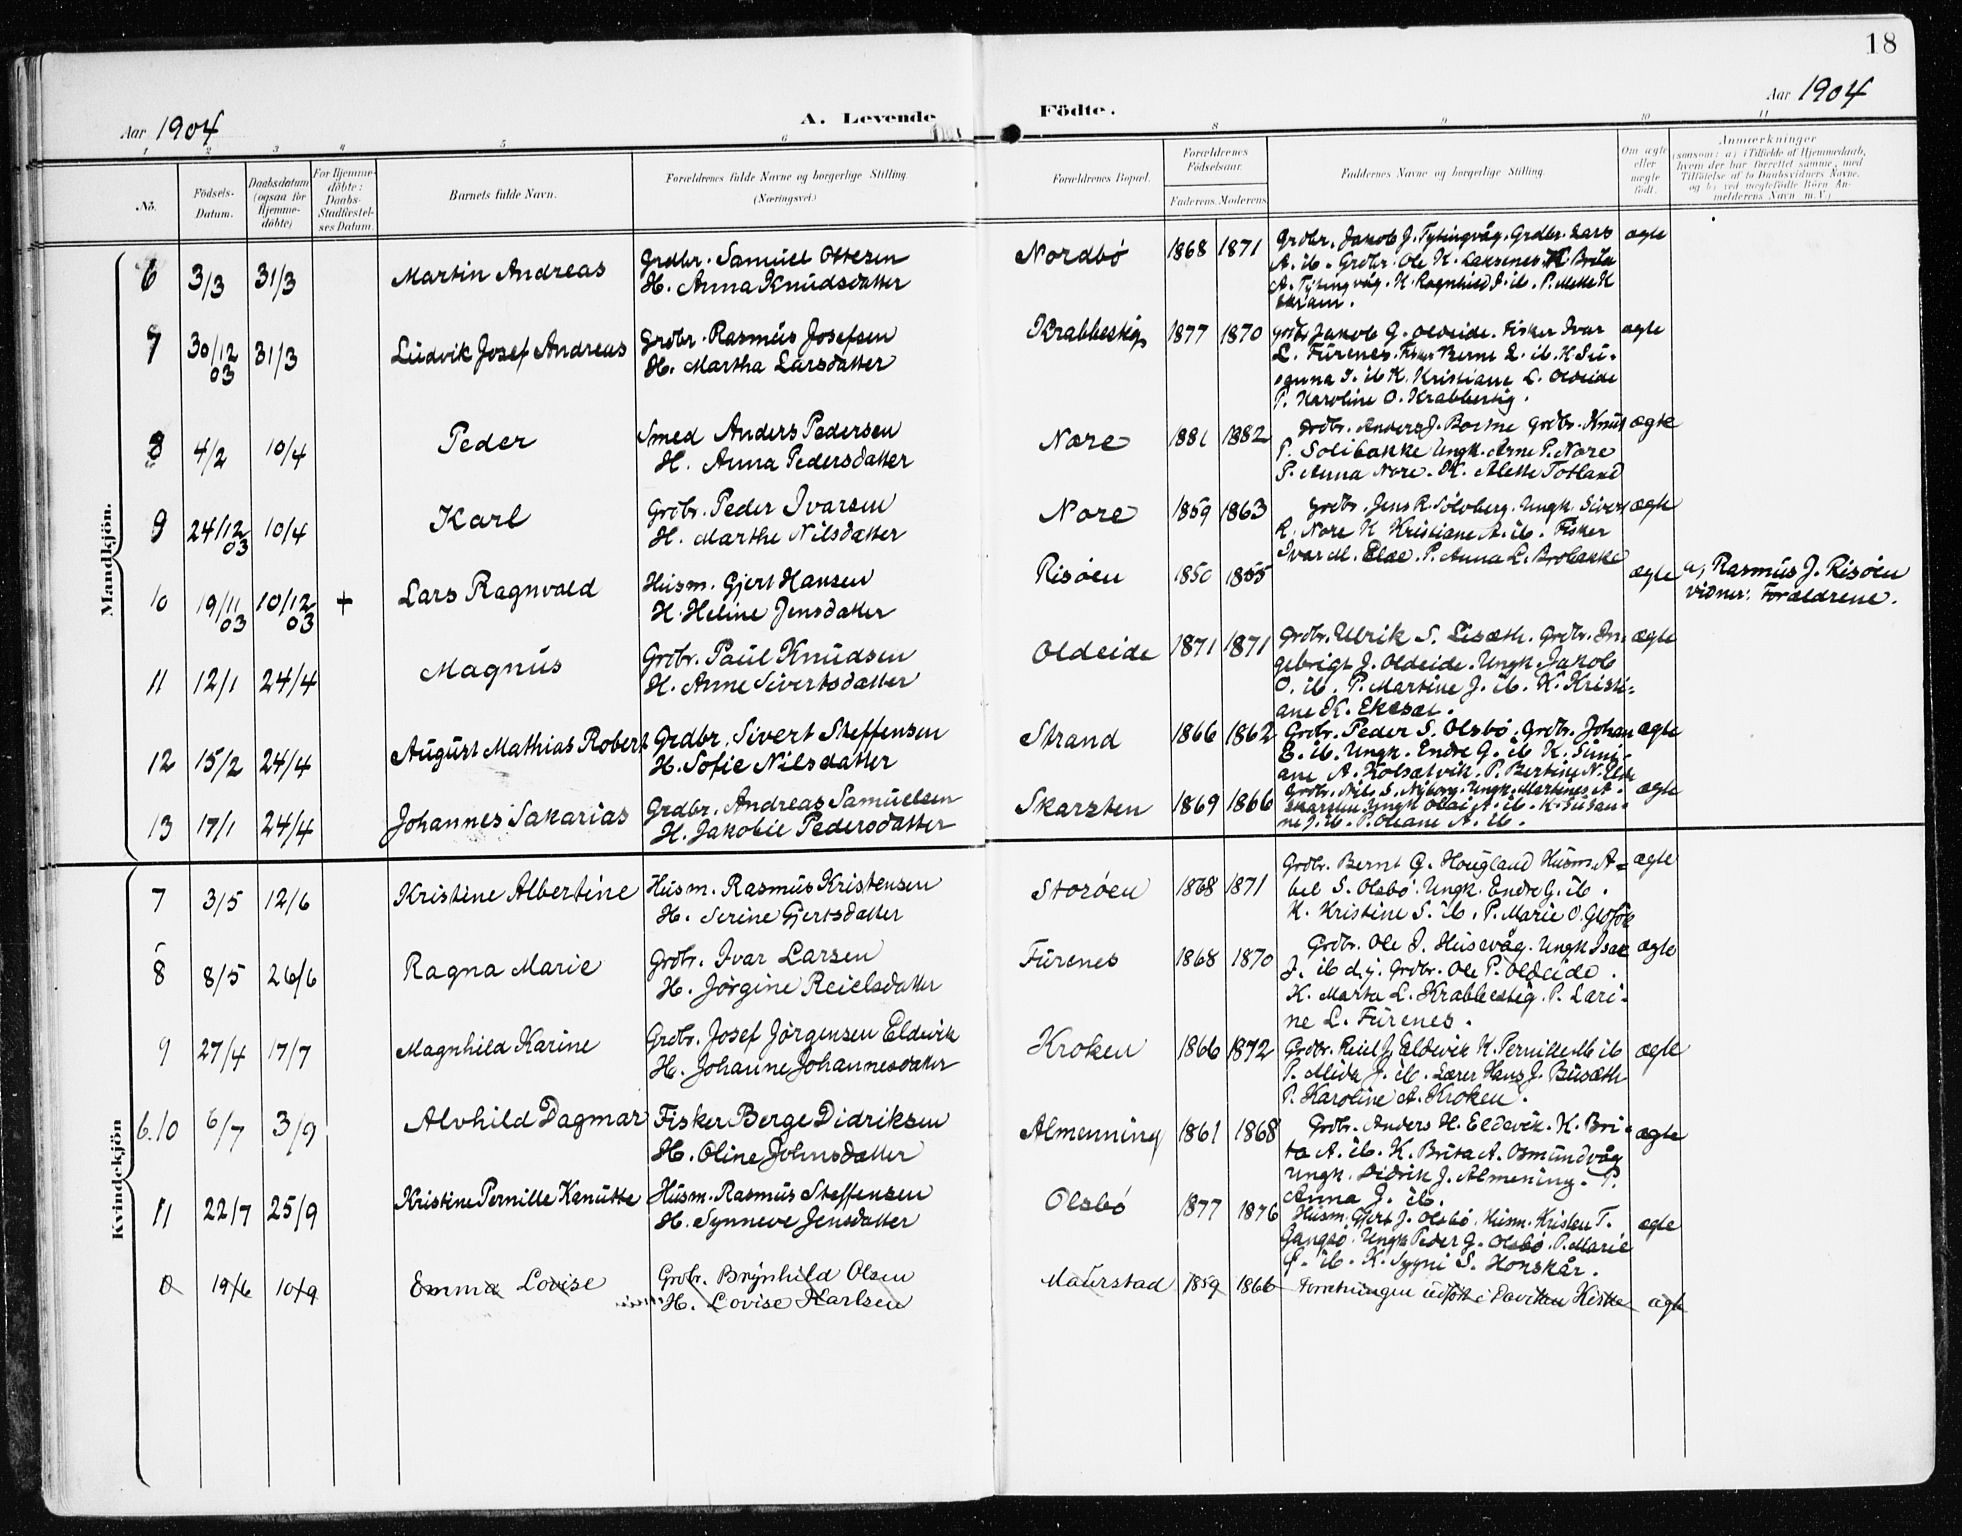 18
Aar 1904
A. Levende Födte.
Aar 1904
1 2 3 4 5 6 8 9 10 11
No.
Födsels-Datum.
Daabsdatum (ogsaa for Hjemmedöbte)
For Hjemmedöbte: Daabs-Stadfæstelses Datum.
Barnets fulde Navn.
Forældrenes fulde Navne og borgerlige Stilling. (Næringsvei.)
Forældrenes Bopæl.
Forældrenes Födselsaar.
Faderens. Moderens.
Faddernes Navne og borgerlige Stilling.
Om ægte eller uægte födt.
Anmærkninger
(saasom: a) i Tilfælde af Hjemmedaab, hvem der har forrettet samme, med Tilföielse af to Daabsvidners Navne, og b) ved uægtefödte Börn Anmelderens Navn m. V.)
Mandkjön.
6 3/3 31/3 Martin Andreas Grdbr. Samuel Ottesen Nordbö 1868 1871 Grdbr. Jakob J. Tytingvåg. Grdbr. Lars ægte
H. Anna Knudsdatter A. ib. Grdbr. Ole K. K. Brita
A. Tytingvåg. K. Ragnhild J. ib. P. Mette K
7 30/12 03 31/3 Ludvik Josef Andreas Grdbr. Rasmus Josefsen Krabbestig 1877 1870 Grdbr Jakob G. Oldeide. Fisker Ivar ægte
H. Martha Larsdatter L. Furenes. Fisker Berne L. ib. K. Su-
sanna I. ib K. Kristiane L. Oldeide
P. Karoline O. Krabbestig.
8 4/2 10/4 Peder Smed Anders Pedersen Nore 1881 1882 Grdbr. Anders J. Grdbr. Knut ægte
H. Anna Pedersdatter P. Solibakke Ungk. Arne P. Nore
P. Anna Nore. K. Alette Totland
9 24/12 03 10/4 Karl Grdbr. Peder Ivarsen Nore 1859 1863 Grdbr. Jens R. Sölvberg. Ungk. Siver ægte
H. Marthe Nilsdatter R. Nore K Kristiane A. ib. Fisker
Ivar M. Elde. P. Anna L. Brobakke
10 19/11 03 10/12 03 + Lars Ragnvald Husm. Gjert Hansen Risöen 1850 1855 ægte a, Rasmus J. Risöen
H. Heline Jensdatter vidner: Forældrene.
11 12/1 24/4 Magnus Grdbr. Paul Knudsen Oldeide 1871 1871 Grdbr. Ulrik S. Lisæth. Grdbr. In- ægte
H. Anne Sivertsdatter gebrigt J. Oldeide. Ungk Jakob
O. ib. P. Martine J. ib. K. Kristi-
ane K.
12 15/2 24/4 August Mathias Robert Grdbr. Sivert Steffensen Strand 1866 1862 Grdbr. Peder S. Olsbö. Grdbr. Johan ægte
H. Sofie Nilsdatter E. ib. Ungk. Endre G. ib K. Simi-
ane A. Kolsætvik. P. Bertine N.
13 17/1 24/4 Johannes Sakarias Grdbr. Andreas Samuelsen Skarsten 1869 1866 Grdbr. Nils S. Nyborg. Ungk. Martines A. ægte
H. Jakobie Pedersdatter Skarsten. Ungk Olai A. ib. K. Susan-
ne J. ib. P. Oleane A. ib.
Kvindekjön
7 3/5 12/6 Kristine Albertine Husm. Rasmus Kristensen Storöen 1868 1871 Grdbr. Bernt G. Hougland Husm. A- ægte
H. Serine Gjertsdatter bel S. Olsbö. Ungk. Endre G. ib.
K. Kristine S. ib. P. Marie O.
8 8/5 26/6 Ragna Marie Grdbr. Ivar Larsen Furenes 1868 1870 Grdbr. Ole J. Husevåg. Ungk Isak ægte
H. Jörgine Reielsdatter J. ib d.y. Grdbr. Ole P. Oldeide.
K. Marta L. Krabbestig. P. Lari-
ne L. Furenes.
9 27/4 17/7 Magnhild Karine Grdbr. Josef Jörgensen Eldevik Kroken 1866 1872 Grdbr. Reiel J. Eldevik K. Pernille M. ib ægte
H. Johanne Johannesdatter P. Alida J. ib. Lærer Hans J. Busæth
P. Karoline A. Kroken.
6.10 6/7 3/9 Alvhild Dagmar Fisker Berge Didriksen Almenning 1861 1868 Grdbr. Anders H. Eldevik. K. Bri- ægte
H. Oline Johnsdatter ta A. ib. K. Brita A. Osmundvåg
Ungk. Didrik J. Almening. P.
Anna J. ib.
11 22/7 25/9 Kristine Pernille Kanutte Husm. Rasmus Steffensen Olsbö 1877 1876 Husm. Gjert J. Olsbö. Husm. Kristen T. ægte
H. Synneve Jensdatter Gangsö. Ungk Peder G. Olsbö. P. Marie
G. ib. K. Sygni S. Honskår.
0 19/6 10/9 Emma Lovise Grdbr. Brynhild Olsen Maurstad 1859 1866 Forretningen udfört i Daviken Kirke ægte
H. Lovise Karlsen